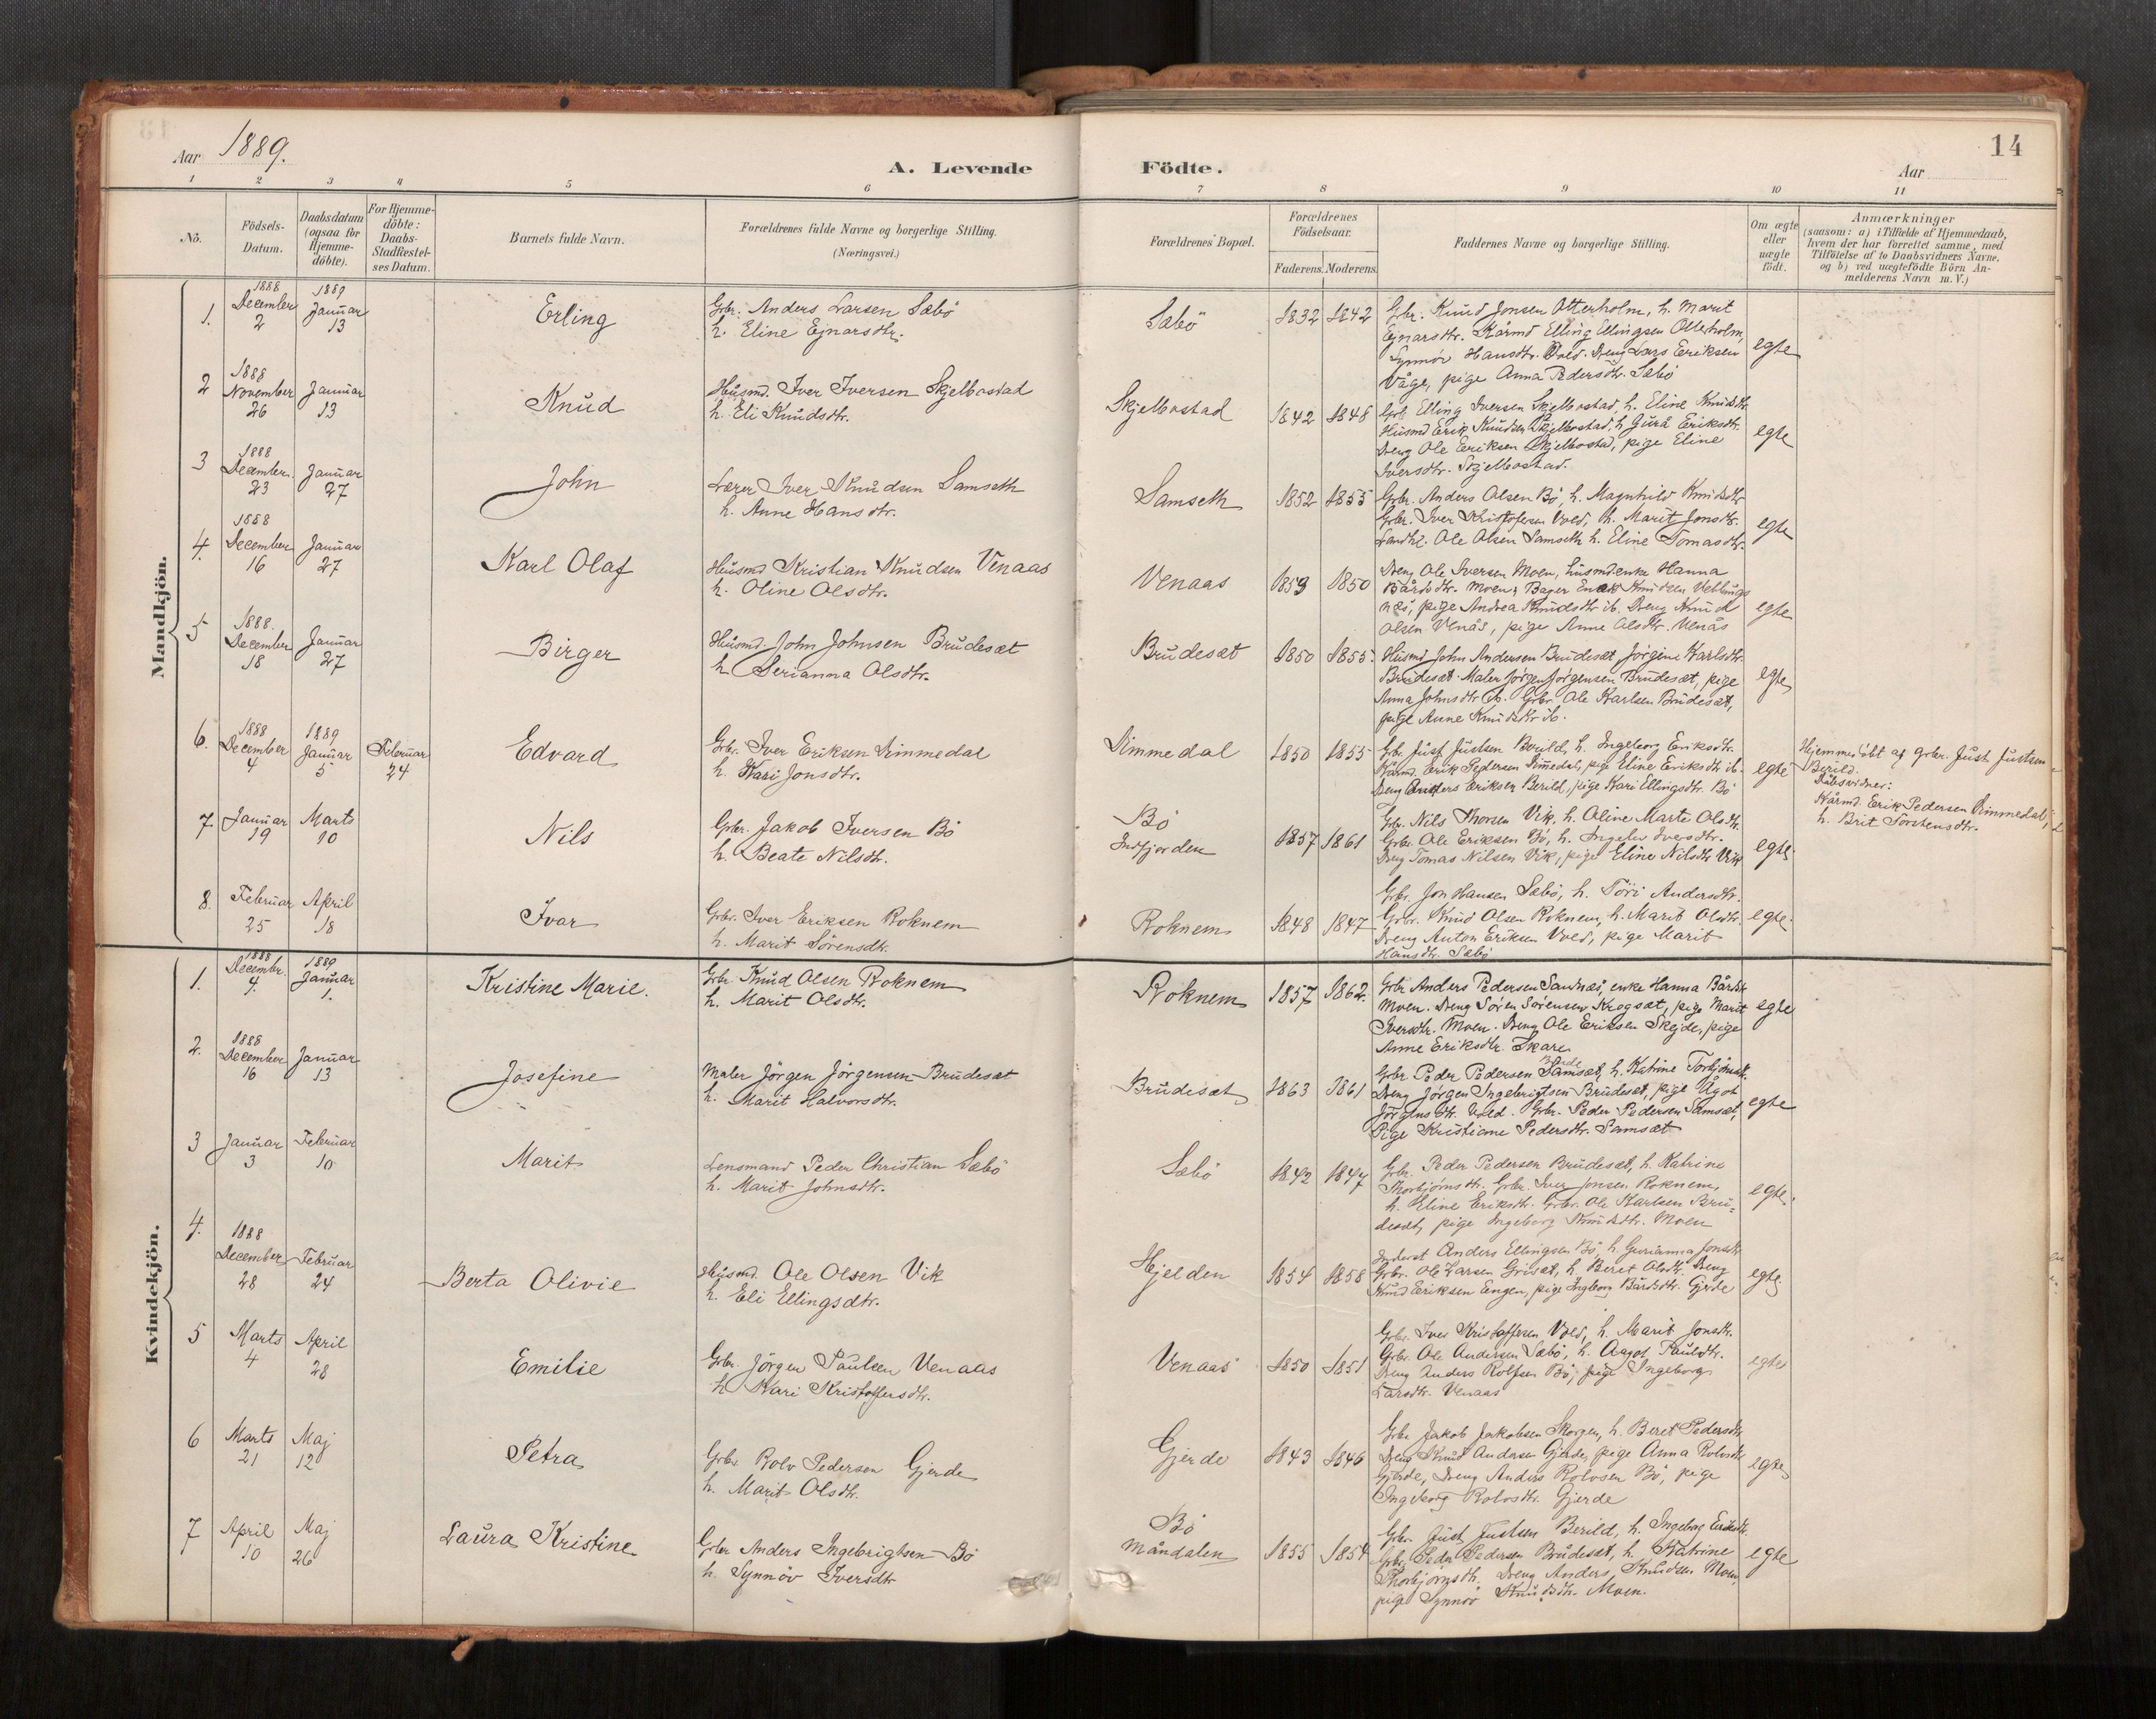 Aar 1889.
A. Levende Födte.
Aar
14
1 2 3 4 5 6 7 8 9 10 11
No.
Födsels-Datum.
Daabsdatum (ogsaa for Hjemme-döbte).
For Hjemme-döbte: Daabs-Stadfæstel-ses Datum.
Barnets fulde Navn.
Forældrenes fulde Navne og borgerlige Stilling. (Næringsvei.)
Forældrenes Bopæl.
Forældrenes Födselsaar.
Faderens. Moderens.
Faddernes Navne og borgerlige Stilling.
Om ægte eller uægte födt.
Anmærkninger
(saasom: a) i Tilfælde af Hjemmedaab,
hvem der har forrettet samme, med
Tilföielse af to Daabsvidners Navne,
og b) ved uægtefödte Börn An-
melderens Navn m. V.)
Mandkjön.
1. 1888 December 2 1889 Januar 13 Erling
Gbr. Anders Larsen Sæbö
h. Eline Ejnarsdtr.
Sæbö 1832 1842
Gbr. Knud Jonsen Otterholm, h. Marit
Ejnarsdtr. Kårmd Elling Ellingsen Otterholm,
Synnöv Hansdtr. Vold. Dreng Lars Eeriksen
Våge, pige Anna Pedersdtr. Sæbö
egte
2 1888 November 26 Januar 13 Knud
Husmd. Iver Iversen Skjelbostad
h. Eli Knudsdtr.
Skjelbostad 1842 1848
Gbr. Elling Iversen Skjelbostad, h. Eline Knudsdtr.
Husmd Erik Knudsen Skjelbostad, h Gurå Eriksdtr.
Dreng Ole Eriksen Skjelbostad, pige Eline
Iversdtr. Skjelbostad.
egte
3 1888 December 23 Januar 27 John
Lærer Iver Knudsen Samseth
h. Anne Hansdtr.
Samseth 1852 1855
Gbr. Anders Olsen Bö, h. Magnhild Knudsdtr
Gbr. Iver Kristofersen Vold, h. Marit Jonsdtr.
Landhl. Ole Olsen Samseth h. Eline Tomasdtr.
egte
4. 1888 December 16 Januar 27 Karl Olaf
Husmd Kristian Knudsen Venaas
h. Oline Olsdtr.
Venaas 1859 1850
Dreng Ole Iversen Moen, husmd.enke Hanna
Bårdsdtr. Moen, Bager Knudsen Veblungs
næs, pige Andrea Knudsdtr ib. Dreng Knud
Olsen Venås, pige Anne Olsdtr. Venås
egte
5 1888. December 18 Januar 27 Birger
Husmd. John Johnsen Brudesæt
h Serianna Olsdtr.
Brudesæt 1850 1855.
Husmd John Andersen Brudesæt, Jörgine Karlsdtr.
Brudesæt. Maler Jörgen Jörgensen Brudesæt, pige
Anna Johnsdtr ib. Gbr. Ole Karlsen Brudesæt,
pige Anne Knudsdtr ib.
egte
6. 1888 December 4 1889 Januar 5 Februar 24 Edvard
Gbr. Iver Eriksen Dimmedal
h. Kari Jonsdtr.
Dimmedal 1850 1855
Gbr. Just Justsen Berild, h. Ingeborg Eriksdtr.
Kårmd. Erik Pedersen Dimedal, pige Eline Eriksdtr ib.
Dreng Anders Eriksen Berild, pige Kari Ellingsdtr. Bö
egte
Hjemmedöbt af Gbr. Just Justsen
Berild.
Dåbsvidner:
Kårmd. Erik Pedersen Dimmedal,
h. Brit Torstensdtr.
7 Januar 19 Marts 10 Nils
Gbr. Jakob Iversen Bö
h. Beate Nilsdtr.
Bö
Indfjorden 1857 1861
Gbr. Nils Thorsen Vik, h. Oline Marte Olsdtr.
Gbr. Ole Eriksen Bö, h. Iversdtr.
Dreng Tomas Nilsen Vik, pige Eline Nilsdtr Vik
egte
8. Februar 25 April 18 Ivar
Gbr. Iver Eriksen Roknem
h. Marit Sörensdtr.
Roknem 1848 1847
Gbr. Jon Hansen Sæbö, h. Töri Andersdtr.
Gbr. Knud Olsen Roknem, h. Marit Olsdtr.
Dreng Anton Eriksen Vold, pige Marit
Hansdtr. Sæbö
egte.
Kvindekjön.
1. 1888 Decembr. 4. 1889 Januar 1. Kristine Marie.
Gbr. Knud Olsen Roknem
h. Marit Olsdtr.
Roknem 1857 1862.
Gbr Anders Pedersen Sandnæs, enke Hanna Bårdsdtr
Moen. Dreng Sören Sörensen Krogsæt, pige Marit
Iversdtr. Moen. Dreng Ole Eriksen Skejde, pige
Anne Eriksdtr. Skare
egte
2. 1888 December 16 Januar 13 Josefine
Maler Jörgen Jörgensen Brudesæt
h. Marit Halvorsdtr.
Brudesæt 1863 1861
Gbr. Peder Pedersen Samsæt, h. Katrine Torbjönsdtr.
Dreng Jörgen Ingebrigtsen Brudesæt, pige Ågot
Jörgensdtr. Vold. Gbr. Peder Pedersen Samsæt,
Pige Kristiane Pedersdtr. Samsæt
egte
3 Januar 3 Februar 10 Marit
Lensmand Peder Christian Sæbö
h. Marit Johnsdtr.
Sæbö 1842 1847
Gbr. Peder Pedersen Brudesæt, h. Katrine
Thorbjörnsdtr. Gbr. Iver Jonsen Roknem,
h. Eline Eriksdtr. Gbr. Ole Karlsen Bru-
desæt, pige Ingeborg Knudsdtr. Moen
egte.
4. 1888 December 28 Februar 24 Berta Olivie
Husmd. Ole Olsen Vik
h. Eli Ellingsdtr.
Hjelden 1854 1858
Anders Ellingsen Bö, h. Gurianna Jonsdtr
Gbr. Ole Larsen Griset, h. Beret Olsdtr. Dreng
Knud Eriksen Engen, pige Ingeborg Bårdsdtr. Gjerde
egte.
5 Marts 4 April 28 Emilie
Gbr. Jörgen Paulsen Venaas
h Kari Kristoffersdtr.
Venaas 1850 1851
Gbr. Iver Kristoffersen Vold, h. Marit Jonsdtr.
Gbr. Ole Andersen Sæbö, h. Aagot Paulsdtr.
Dreng Anders Rolfsen Bö, pige Ingeborg
Larsdtr. Venaas
egte
6 Marts 21 Maj 12 Petra
Gbr. Rolv Pedersen Gjerde
h. Marit Olsdtr.
Gjerde 1843 1846
Gbr Jakob Jakobsen Skorgen, h. Beret Pedersdtr
Dreng Knud Andersen Gjerde, pige Anna Rolvsdtr
Gjerde, Dreng Anders Rolvsen Bö, pige
Ingeborg Rolvsdtr. Gjerde
egte
7 April 10 Maj 26 Laura Kristine
Gbr Anders Ingebrigtsen Bö
h. Synnöv Iversdtr
Bö
Måndalen 1855 1854
Gbr. Just Justsen Berild, h. Ingeborg Eriksdtr.
Gbr. Peder Pedersen Brudesæt, h. Katrine
Thorbjörnsdtr. Dreng Anders Knudsen Moen,
pige Synnöv Knudsdtr. Moen.
egte